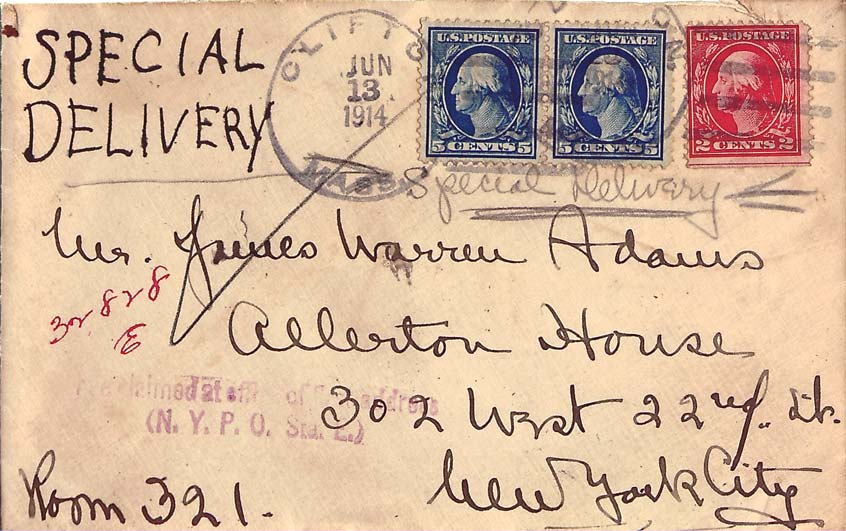 SPECIAL
DELIVERY
CLIFTO
JUN
13
1914
MASS.
U.S.POSTAGE
5 CENTS 5
U.S.POSTAGE
5 CENTS 5
U.S.POSTAGE
2 CENTS 2
Special Delivery
Mr. James Warren Adams
32828
E
Allerton House
claimed at of address
302 West 22nd. St.
(N. Y. P. O. Sta. E.)
New York City
Room 321.